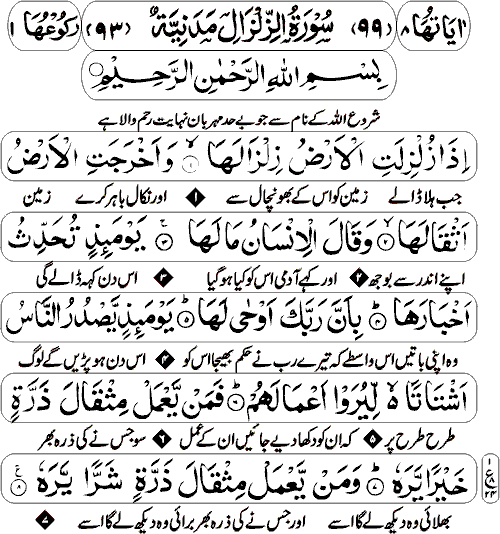 اٰيَاتُهَا ٨ (٩٩) سُوْرَةُ الزِّلْزَالِ مَدَنِيَّةٌ (٩٣) رُكُوْعُهَا ١
بِسْمِ اللهِ الرَّحْمٰنِ الرَّحِيْمِ
شروع اللہ کے نام سے جو بے حد مہربان نہایت رحم والا ہے
اِذَا زُلْزِلَتِ الْاَرْضُ زِلْزَالَهَا ۙ۱ وَاَخْرَجَتِ الْاَرْضُ
جب ہلا ڈالے زمین کو اس کے بھونچال سے ۱ اور نکال باہر کرے زمین
اَثْقَالَهَا ۙ۲ وَقَالَ الْاِنْسَانُ مَا لَهَا ۚ۳ يَوْمَئِذٍ تُحَدِّثُ
اپنے اندر سے بوجھ ۲ اور کہے آدمی اس کو کیا ہو گیا ۳ اس دن کہہ ڈالے گی
اَخْبَارَهَا ۙ۴ بِاَنَّ رَبَّكَ اَوْحٰى لَهَا ۵ يَوْمَئِذٍ يَّصْدُرُ النَّاسُ
وہ اپنی باتیں اس واسطے کہ تیرے رب نے حکم بھیجا اس کو ۴ اس دن ہو پڑیں گے لوگ
اَشْتَاتًا ۙ۵ لِّيُرَوْا اَعْمَالَهُمْ ۶ فَمَنْ يَّعْمَلْ مِثْقَالَ ذَرَّةٍ
طرح طرح پر ۵ کہ ان کو دکھا دیے جائیں ان کے عمل ۶ سو جس نے کی ذرہ بھر
خَيْرًا يَّرَهٗ ۷ وَمَنْ يَّعْمَلْ مِثْقَالَ ذَرَّةٍ شَرًّا يَّرَهٗ ۸
بھلائی وہ دیکھ لے گا اسے اور جس نے کی ذرہ بھر برائی وہ دیکھ لے گا اسے ۷